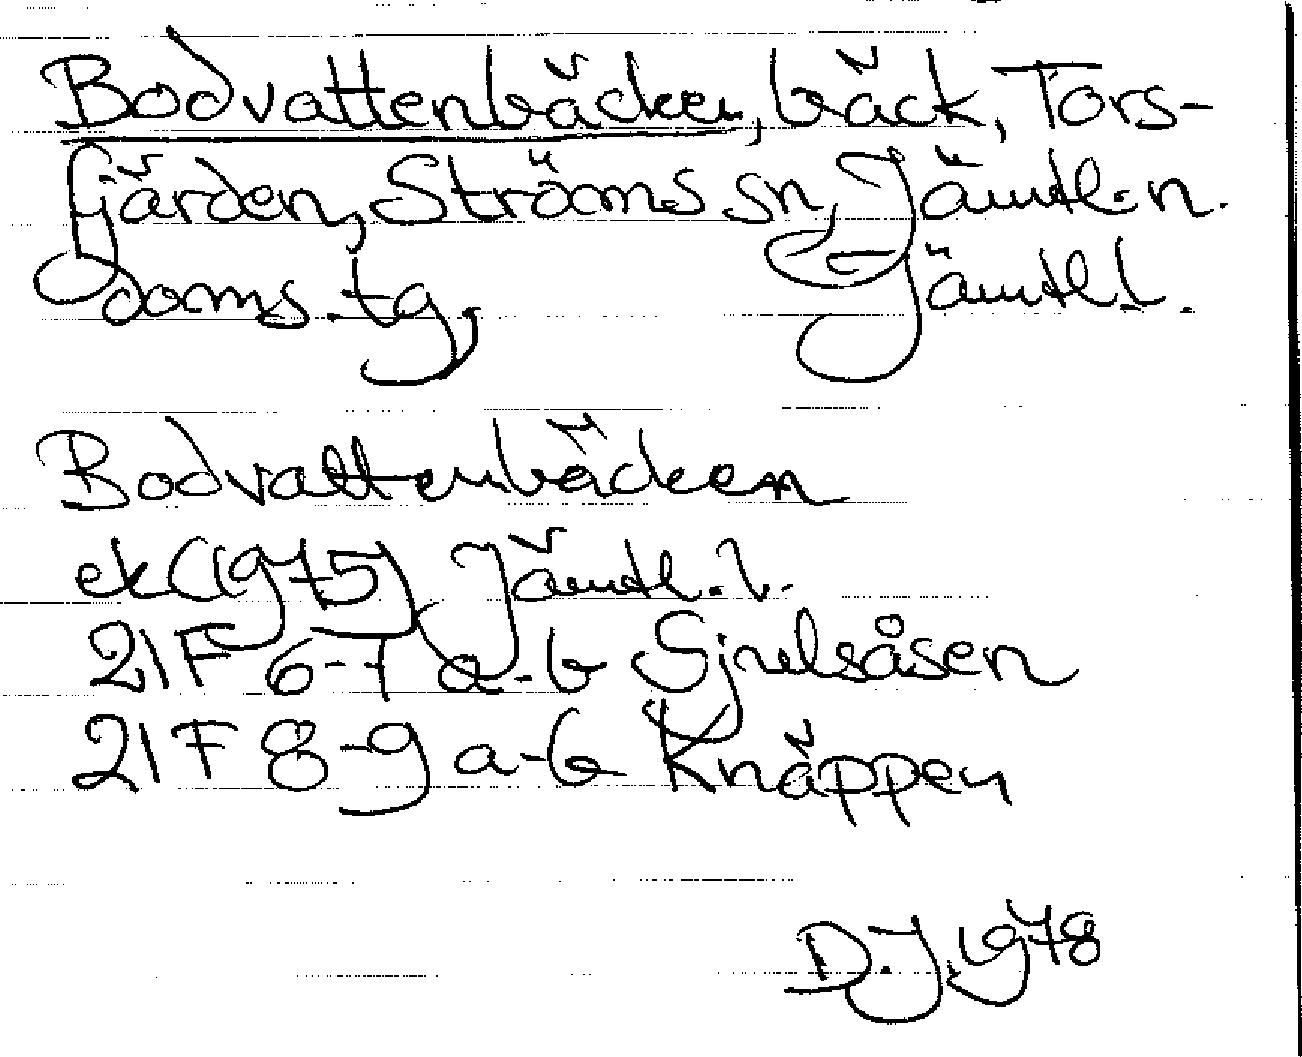 Bodvattenbäcken, bäck, Tors-
fjärden, Ströms sn, Jämtl. n.
doms. tg, Jämtl l.
Bodvattenbäcken
ek (1975) Jämtl. l.
21 F 6-7 a-b Sjulsåsen
21 F 8-9 a-b Knäppen
D.J. 1978